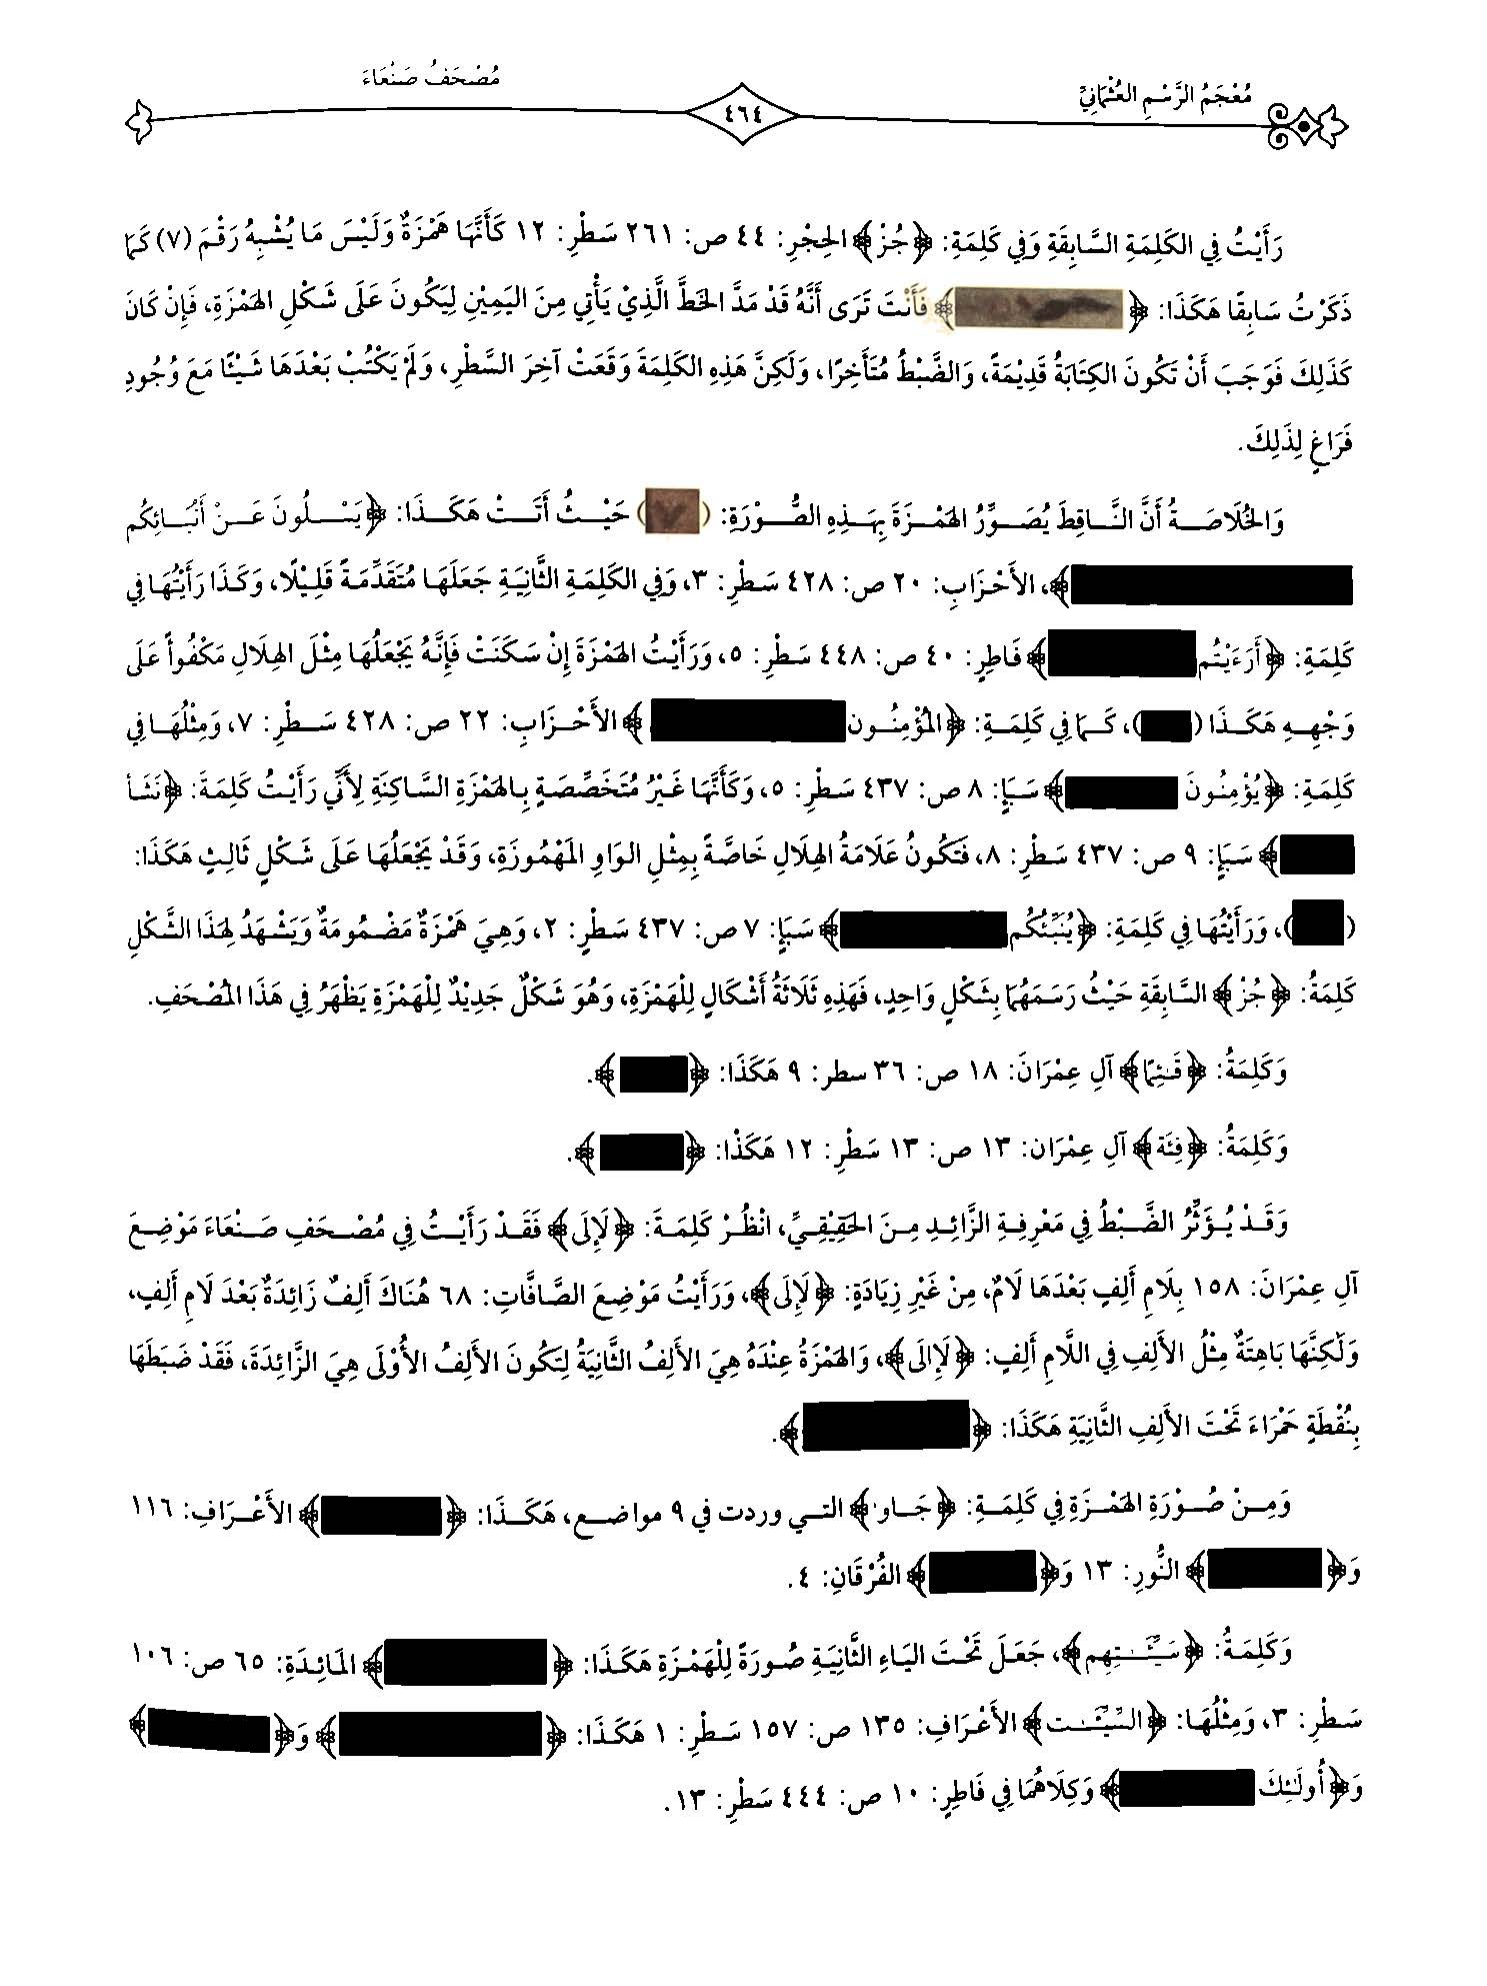 مُعْجَمُ الرَّسْمِ العُثْمَانِيِّ
٤٦٤
مُصْحَفُ صَنْعَاءَ
رَأَيْتُ فِي الكَلِمَةِ السَّابِقَةِ وَفِي كَلِمَةِ: ﴿جُزْ﴾ الحِجْرِ: ٤٤ ص: ٢٦١ سَطْرِ: ١٢ كَأَنَّهَا هَمْزَةٌ وَلَيْسَ مَا يُشْبِهُ رَقْمَ (٧) كَمَا
ذَكَرْتُ سَابِقًا هَكَذَا: ﴿ ﴾ فَأَنْتَ تَرَى أَنَّهُ قَدْ مَدَّ الخَطَّ الَّذِيْ يَأْتِي مِنَ اليَمِيْنِ لِيَكُونَ عَلَى شَكْلِ الهَمْزَةِ، فَإِنْ كَانَ
كَذَلِكَ فَوَجَبَ أَنْ تَكُونَ الكِتَابَةُ قَدِيْمَةً، وَالضَّبْطُ مُتَأَخِرًا، وَلَكِنَّ هَذِهِ الكَلِمَةَ وَقَعَتْ آخِرَ السَّطْرِ، وَلَمْ يَكْتُبْ بَعْدَهَا شَيْئًا مَعَ وُجُودِ
فَرَاغٍ لِذَلِكَ.
وَالخُلَاصَةُ أَنَّ النَّاقِطَ يُصَوِّرُ الهَمْزَةَ بِهَذِهِ الصُّوْرَةِ: ( ) حَيْثُ أَتَتْ هَكَذَا: ﴿يَسْلُونَ عَنْ أَنْبَائِكُم
﴾، الأَحْزَابِ: ٢٠ ص: ٤٢٨ سَطْرِ: ٣، وَفِي الكَلِمَةِ الثَّانِيَةِ جَعَلَهَا مُتَقَدِّمَةً قَلِيْلًا، وَكَذَا رَأَيْتُهَا فِي
كَلِمَةِ: ﴿أَرَءَيْتُم ﴾ فَاطِرٍ: ٤٠ ص: ٤٤٨ سَطْرِ: ٥، وَرَأَيْتُ الهَمْزَةَ إِنْ سَكَنَتْ فَإِنَّهُ يَجْعَلُهَا مِثْلَ الهِلَالِ مَكْفُوأً عَلَى
وَجْهِهِ هَكَذَا ( )، كَمَا فِي كَلِمَةِ: ﴿الْمُؤْمِنُونَ ﴾ الأَحْزَابِ: ٢٢ ص: ٤٢٨ سَطْرِ: ٧، وَمِثْلُهَا فِي
كَلِمَةِ: ﴿يُؤْمِنُونَ ﴾ سَبَإٍ: ٨ ص: ٤٣٧ سَطْرِ: ٥، وَكَأَنَّهَا غَيْرُ مُتَخَصِّصَةٍ بِالهَمْزَةِ السَّاكِنَةِ لِأَنِّي رَأَيْتُ كَلِمَةَ: ﴿نَشَأ
﴾ سَبَإٍ: ٩ ص: ٤٣٧ سَطْرِ: ٨، فَتَكُونُ عَلَامَةُ الهِلَالِ خَاصَّةً بِمِثْلِ الوَاوِ المَهْمُوزَةِ، وَقَدْ يَجْعَلُهَا عَلَى شَكْلٍ ثَالِثٍ هَكَذَا:
( )، وَرَأَيْتُهَا فِي كَلِمَةِ: ﴿يُنَبِّئُكُم ﴾ سَبَإٍ: ٧ ص: ٤٣٧ سَطْرٍ: ٢، وَهِيَ هَمْزَةٌ مَضْمُومَةٌ وَيَشْهَدُ لِهَذَا الشَّكْلِ
كَلِمَةُ: ﴿جُزْ﴾ السَّابِقَةِ حَيْثُ رَسَمَهُمَا بِشَكْلٍ وَاحِدٍ، فَهَذِهِ ثَلَاثَةُ أَشْكَالٍ لِلْهَمْزَةِ، وَهُوَ شَكْلٌ جَدِيْدٌ لِلْهَمْزَةِ يَظْهَرُ فِي هَذَا المُصْحَفِ.
وَكَلِمَةُ: ﴿قَـئِمًا﴾ آلِ عِمْرَانَ: ١٨ ص: ٣٦ سطر: ٩ هَكَذَا: ﴿ ﴾.
وَكَلِمَةُ: ﴿فِئَة﴾ آلِ عِمْرَان: ١٣ ص: ١٣ سَطْرِ: ١٢ هَكَذْا: ﴿ ﴾.
وَقَدْ يُؤَثِّرُ الضَّبْطُ فِي مَعْرِفَةِ الزَّائِدِ مِنَ الحَقِيْقِيِّ، انْظُرْ كَلِمَةَ: ﴿لَإِلَى﴾ فَقَدْ رَأَيْتُ فِي مُصْحَفِ صَنْعَاءَ مَوْضِعَ
آلِ عِمْرَانَ: ١٥٨ بِلَامِ أَلِفٍ بَعْدَهَا لَامٌ، مِنْ غَيْرِ زِيَادَةٍ: ﴿لَإِلَى﴾، وَرَأَيْتُ مَوْضِعَ الصَّافَّاتِ: ٦٨ هُنَاكَ أَلِفٌ زَائِدَةٌ بَعْدَ لَامِ أَلِفٍ،
وَلَكِنَّهَا بَاهِتَةٌ مِثْلُ الأَلِفِ فِي اللَّامِ أَلِفٍ: ﴿لَاإِلَى﴾، وَالهَمْزَةُ عِنْدَهُ هِيَ الأَلِفُ الثَّانِيَةُ لِتَكُونَ الأَلِفُ الأُوْلَى هِيَ الزَّائِدَةَ، فَقَدْ ضَبَطَهَا
بِنُقْطَةٍ حَمْرَاءَ تَحْتَ الأَلِفِ الثَّانِيَةِ هَكَذَا: ﴿ ﴾.
وَمِنْ صُوْرَةِ الهَمْزَةِ فِي كَلِمَةِ: ﴿جَاو﴾ التي وردت في ٩ مواضع، هَكَذَا: ﴿ ﴾ الأَعْرَافِ: ١١٦
وَ﴿ ﴾ النُّورِ: ١٣ وَ﴿ ﴾ الفُرْقَانِ: ٤.
وَكَلِمَةُ: ﴿سَيِّئَـٰتِهِم﴾، جَعَلَ تَحْتَ اليَاءِ الثَّانِيَةِ صُورَةً لِلْهَمْزَةِ هَكَذَا: ﴿ ﴾ المَائِدَةِ: ٦٥ ص: ١٠٦
سَطْرِ: ٣، وَمِثْلُهَا: ﴿السَّيِّئَـٰت﴾ الأَعْرَافِ: ١٣٥ ص: ١٥٧ سَطْرِ: ١ هَكَذَا: ﴿ ﴾ وَ﴿ ﴾
وَ﴿أُولَـٰئِكَ ﴾ وَكِلَاهُمَا فِي فَاطِرٍ: ١٠ ص: ٤٤٤ سَطْرِ: ١٣.